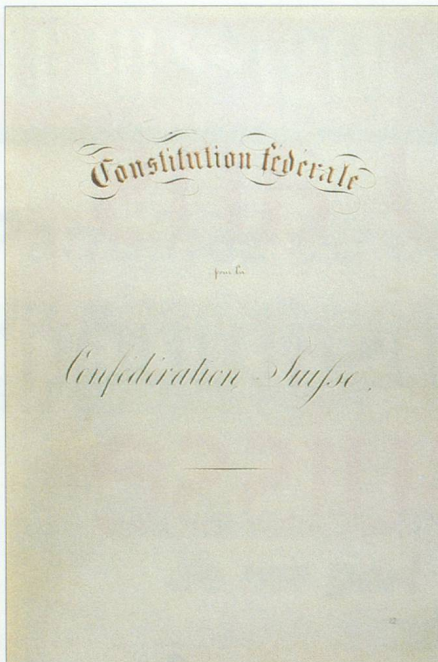 Constitution fédérale
pour la
Confédération Suisse.